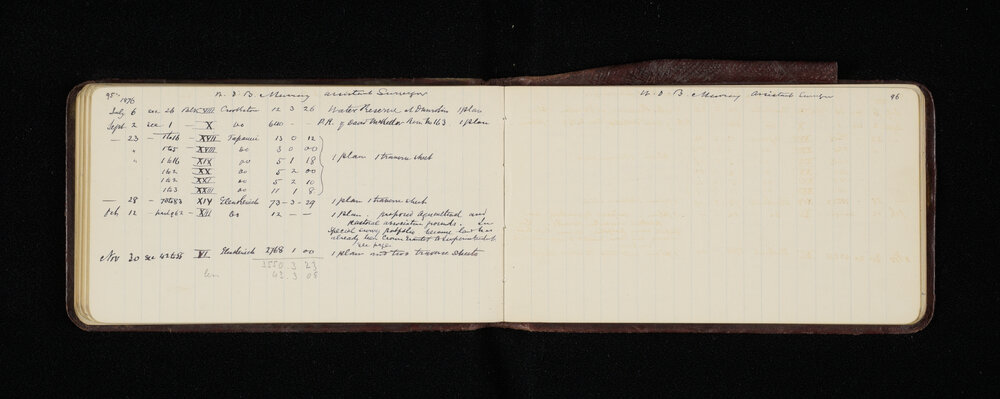 95 W. D. B. Murray assistant Surveyor
1876
July 6 sec 26 Block VIII Crookston 12 3 26 Water Reserve at 1 plan
Sept. 2 sec 1 - X do 640 - - P.R. of David No 163. 1 plan
- 23 - 1 to 16 - XVII Tapanui 13 0 12
" 1 to 5 - XVIII do 3 0 00
" 1 to 16 XIX do 5 1 18 1 plan 1 traverse sheet
1 to 2 XX do 5 2 00
1 to 2 XXI do 5 2 10
1 to 3 XXII do 11 1 8
- 28 - XIV Glenkenich 73 - 3 - 29 1 plan 1 traverse sheet
Oct 12 - - XII do 12 - - 1 plan proposed Agricultural and
Pastoral association grounds. In
special survey
already been
see page
Nov 20 sec VI Glenkenich 2768 1 00 1 plan and two traverse sheets
3550.3.23
43.3.05
W. D. B Murray Assistant Surveyor 96